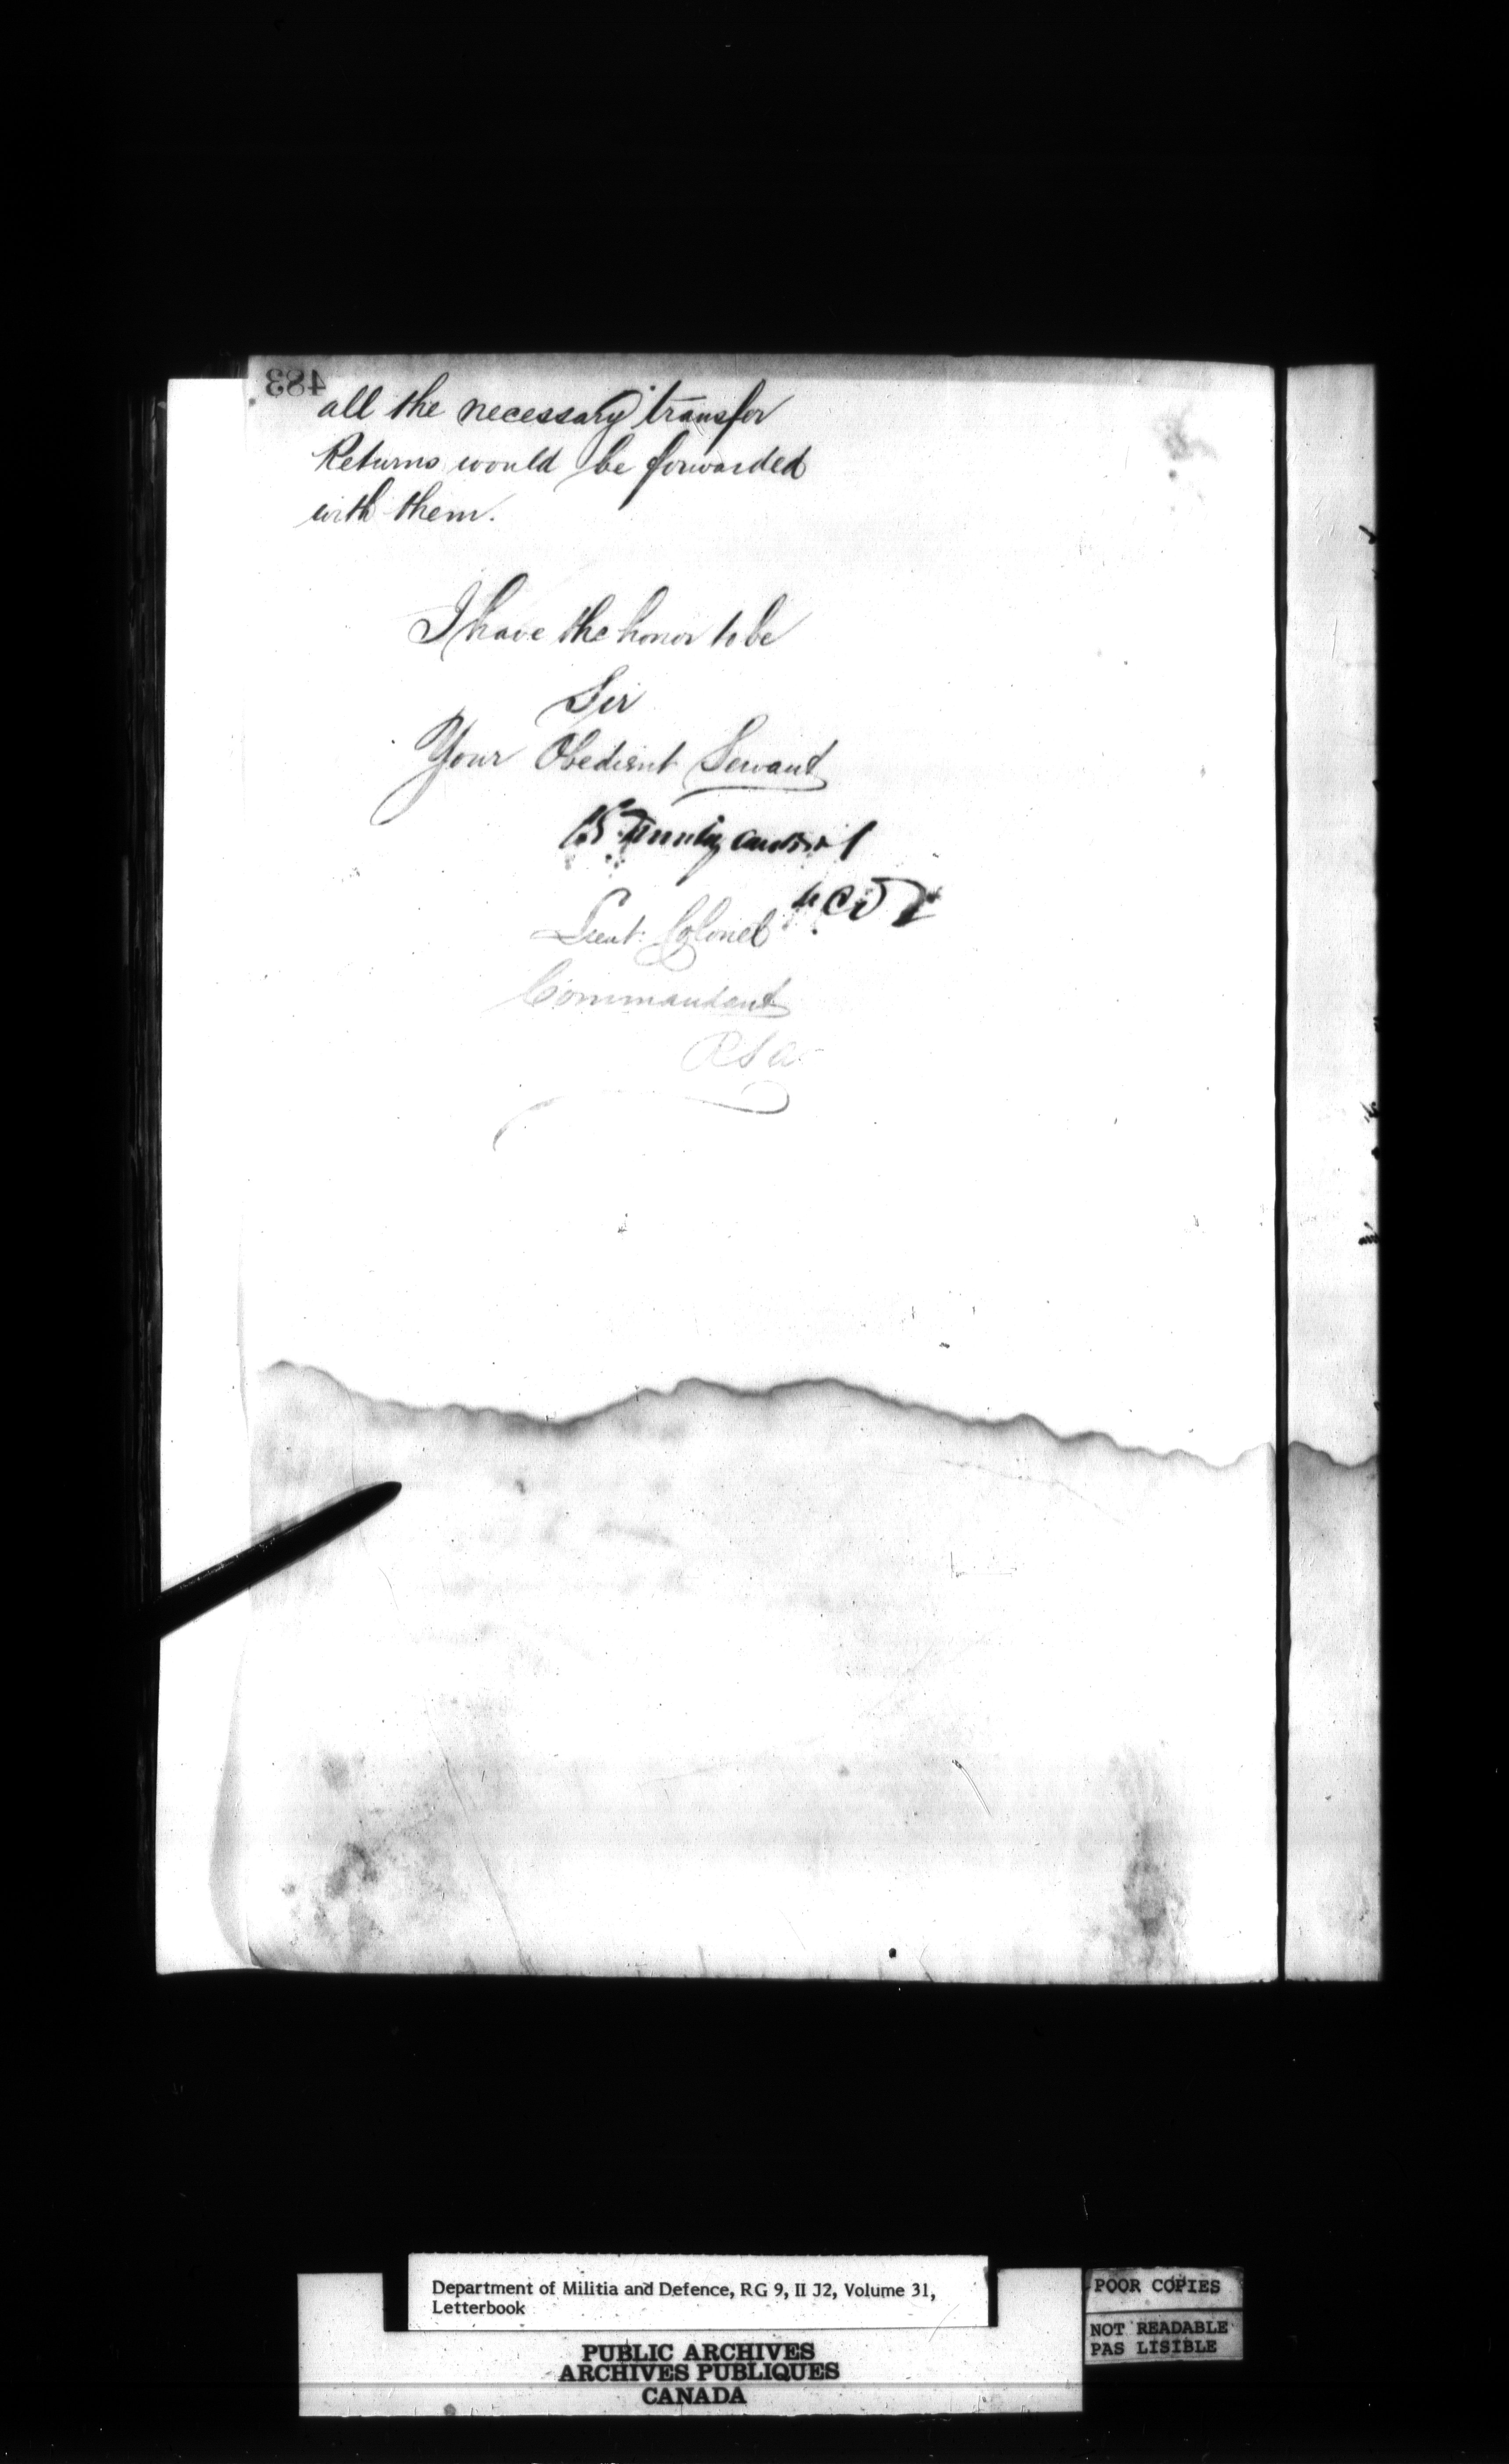 483
all the necessary transfer
Returns would be forwarded
with them.
I have the honor to be
Sir
Your Obedient Servant
Lieut. Colonel
Commandant
RSA
Department of Militia and Defence, RG 9, II J2, Volume 31,
Letterbook
PUBLIC ARCHIVES
ARCHIVES PUBLIQUES
CANADA
POOR COPIES
NOT READABLE
PAS LISIBLE